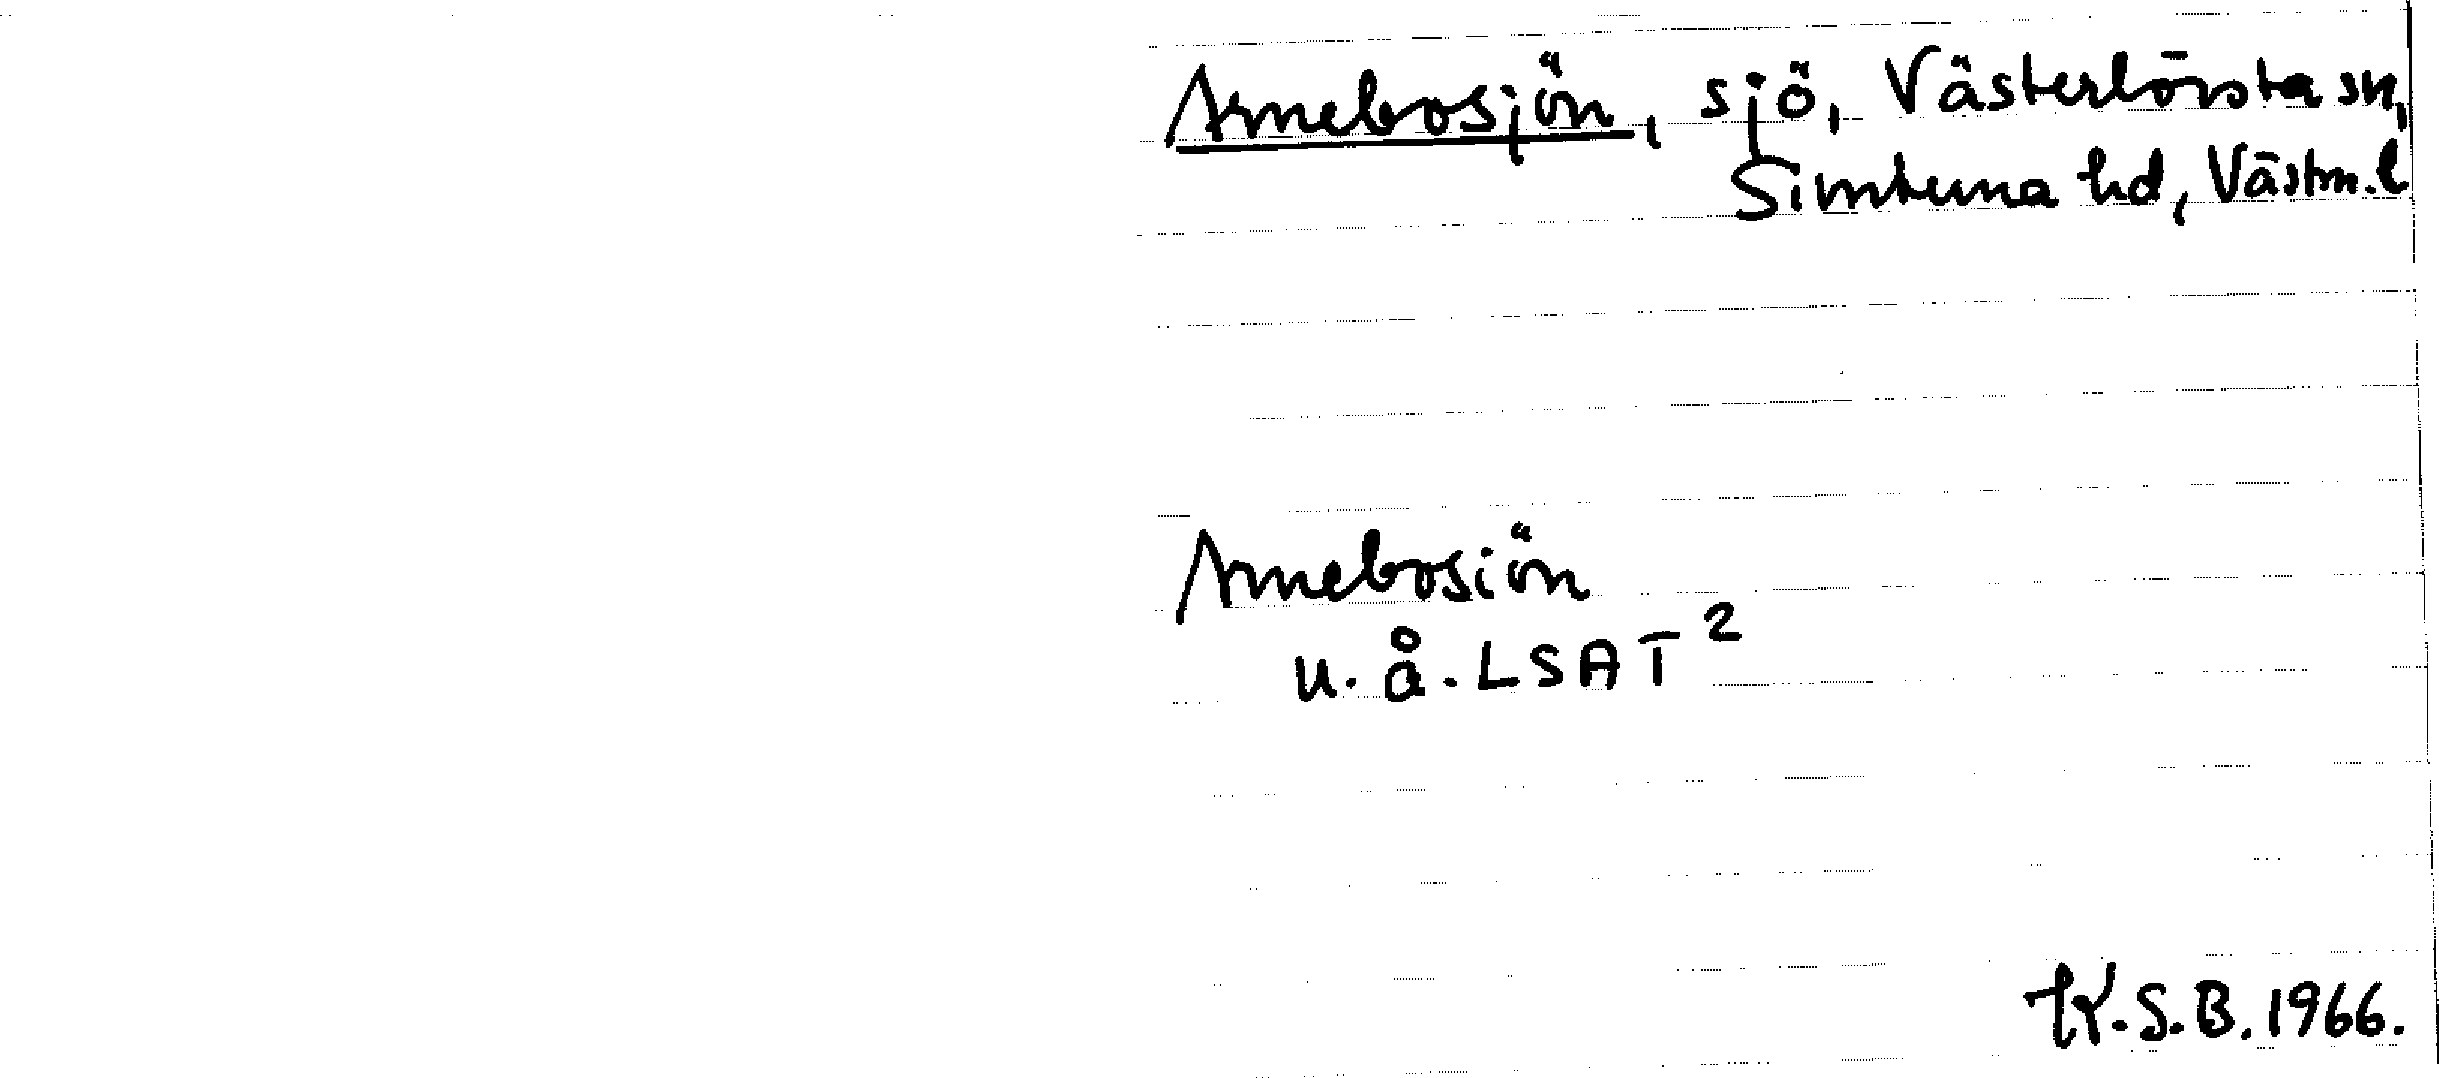 Arnebosjön, sjö, Västerlövsta sn,
Simtuna hd, Västm. l
Arnebosiön
u. å. LSA T²
K.S.B. 1966.